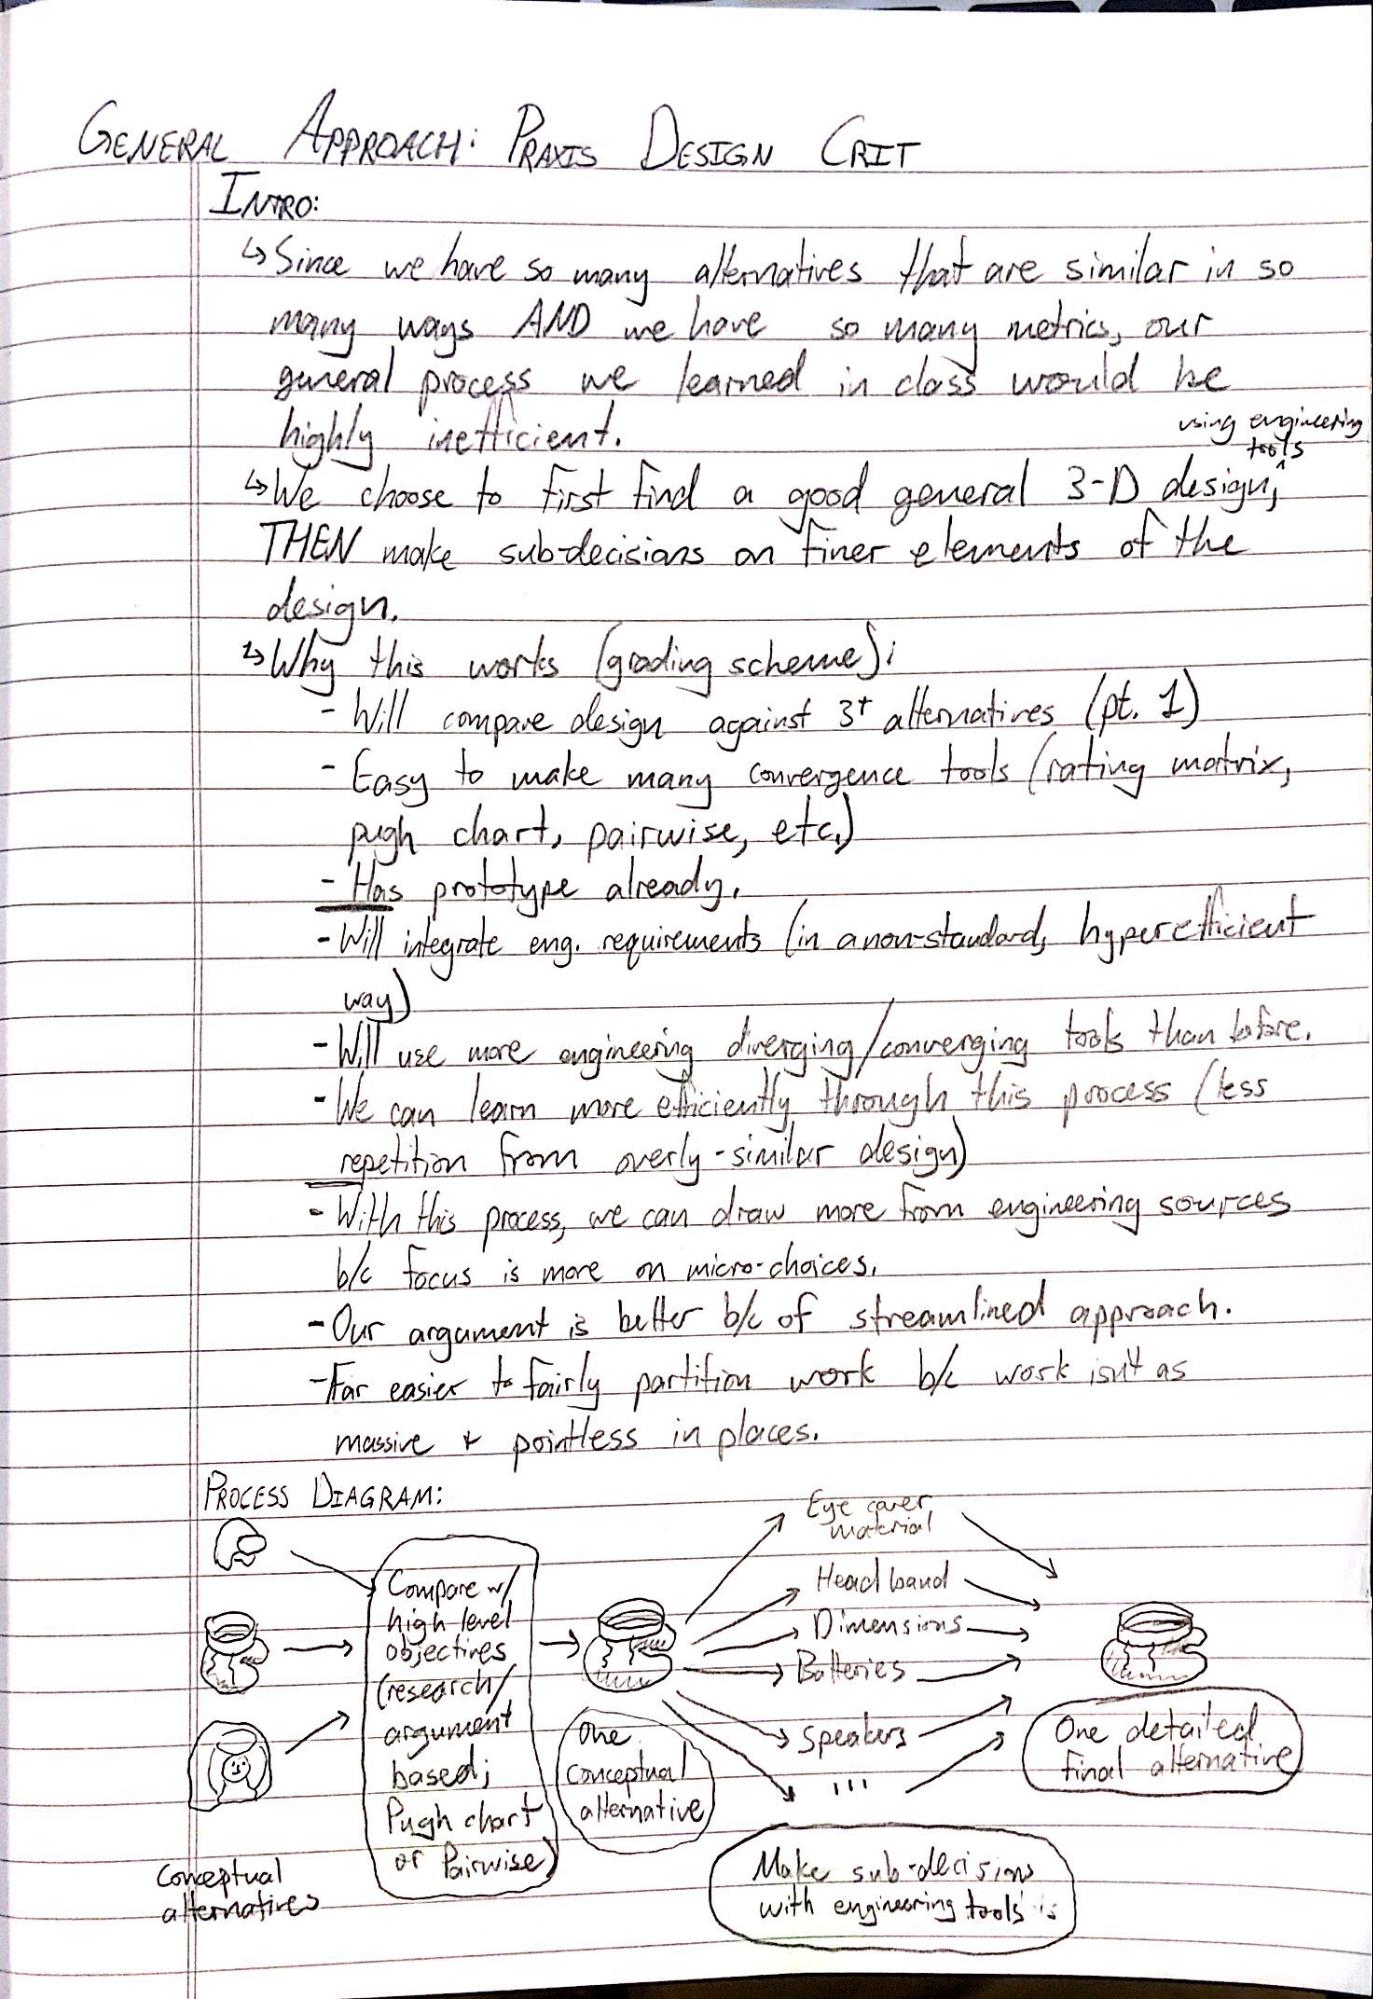 GENERAL APPROACH: PRAXIS DESIGN CRIT
INTRO:
↳ Since we have so many alternatives that are similar in so
many ways AND we have so many metrics, our
general process we learned in class would be
highly inefficient.
using engineering
tools
↳ We choose to first find a good general 3-D design,
THEN make sub-decisions on finer elements of the
design.
↳ Why this works (grading scheme):
- Will compare design against 3+ alternatives (pt. 1)
- Easy to make many convergence tools (rating matrix,
pugh chart, pairwise, etc.)
- Has prototype already.
- Will integrate eng. requirements (in a non-standard, hyperefficient
way)
- Will use more engineering diverging/converging tools than before.
- We can learn more efficiently through this process (less
repetition from overly-similar design)
- With this process, we can draw more from engineering sources
b/c focus is more on micro-choices.
- Our argument is better b/c of streamlined approach.
- Far easier to fairly partition work b/c work isn't as
massive + pointless in places.
PROCESS DIAGRAM:
Conceptual
alternatives
Compare w/
high level
objectives
(research/
argument
based;
Pugh chart
or Pairwise)
One
conceptual
alternative
Eye cover
material
Head band
Dimensions
Batteries
Speakers
...
Make sub-decisions
with engineering tools
One detailed
final alternative